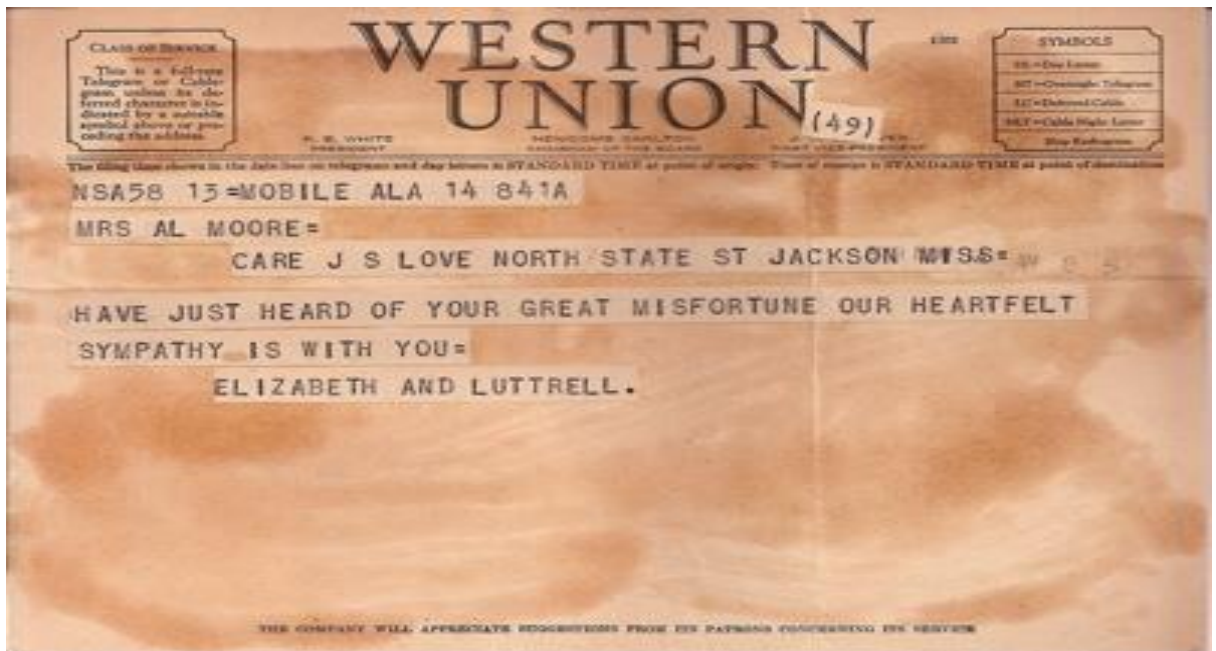 CLASS OF SERVICE
This is a full-rate
Telegram or Cable-
gram unless its de-
ferred character is in-
dicated by a suitable
symbol above or pre-
ceding the address.
WESTERN
UNION
(49)
SYMBOLS
DL=Day Letter
NT=Overnight Telegram
LC=Deferred Cable
NLT=Cable Night Letter
Ship Radiogram
R. B. WHITE
PRESIDENT
NEWCOMB CARLTON
CHAIRMAN OF THE BOARD
FIRST VICE-PRESIDENT
The filing time shown in the date line on telegrams and day letters is STANDARD TIME at point of origin. Time of receipt is STANDARD TIME at point of destination
NSA58 13=MOBILE ALA 14 841A
MRS AL MOORE=
CARE J S LOVE NORTH STATE ST JACKSON MISS=
HAVE JUST HEARD OF YOUR GREAT MISFORTUNE OUR HEARTFELT
SYMPATHY IS WITH YOU=
ELIZABETH AND LUTTRELL.
THE COMPANY WILL APPRECIATE SUGGESTIONS FROM ITS PATRONS CONCERNING ITS SERVICE